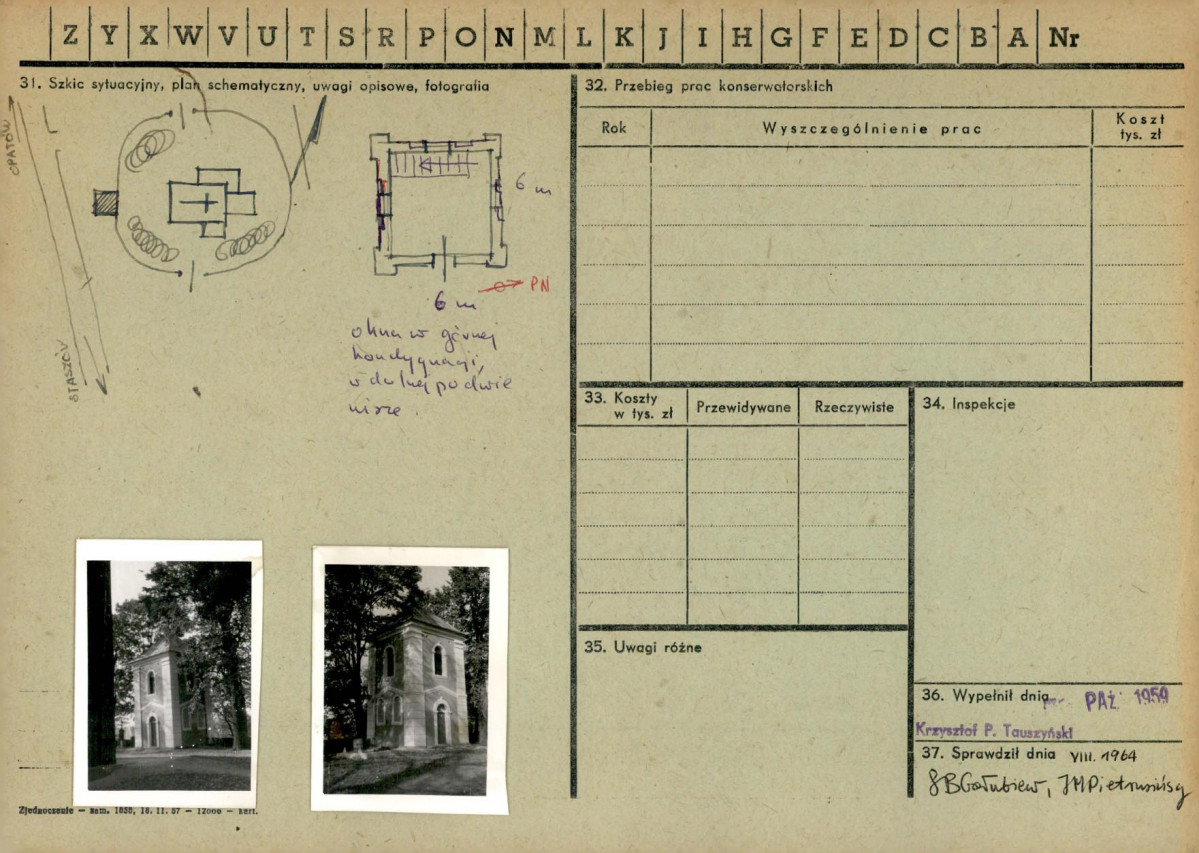 Z Y X W V U T S R P O N M L K J I H G F E D C B A Nr
31. Szkic sytuacyjny, plan schematyczny, uwagi opisowe, fotografia
OPATÓW
STASZÓW
6 m
PN
6 m
okna w górnej
kondygnacji,
w dolnej po dwie
nisze.
Zjednoczenie — zam. 1858, 18. 11. 57 — 12000 — kart.
32. Przebieg prac konserwatorskich
Rok
Wyszczególnienie prac
Koszt
tys. zł
33. Koszty
w tys. zł
Przewidywane
Rzeczywiste
34. Inspekcje
35. Uwagi różne
36. Wypełnił dnia PAŹ. 1959
Krzysztof P. Tauszyński
37. Sprawdził dnia VIII. 1964